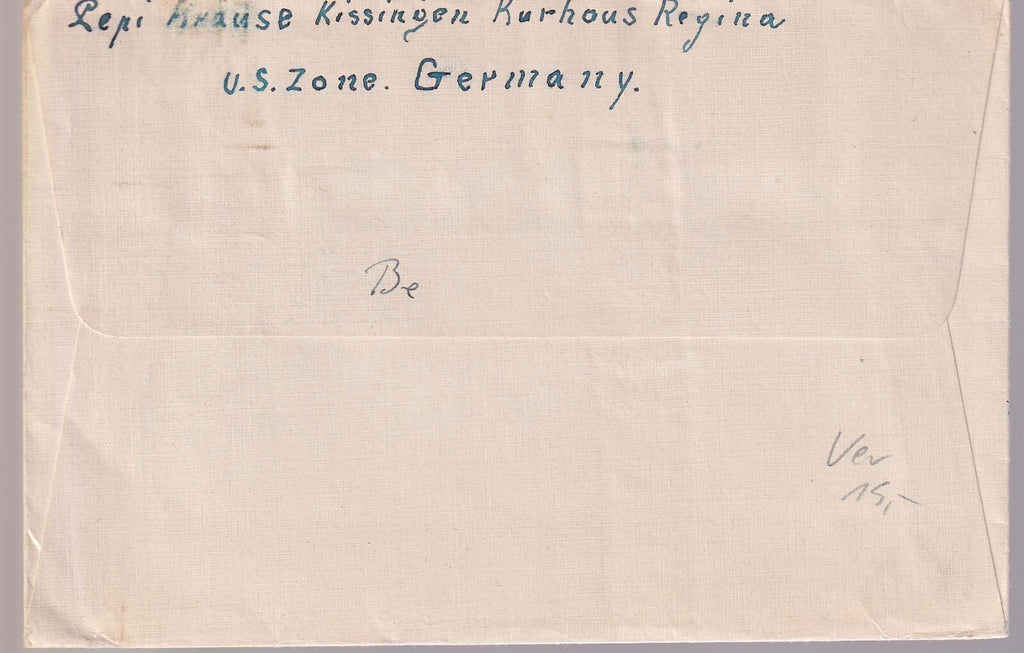 Pepi Krause Kissingen Kurhous Regina
U.S. Zone. Germany.
Be
Ver
15,-